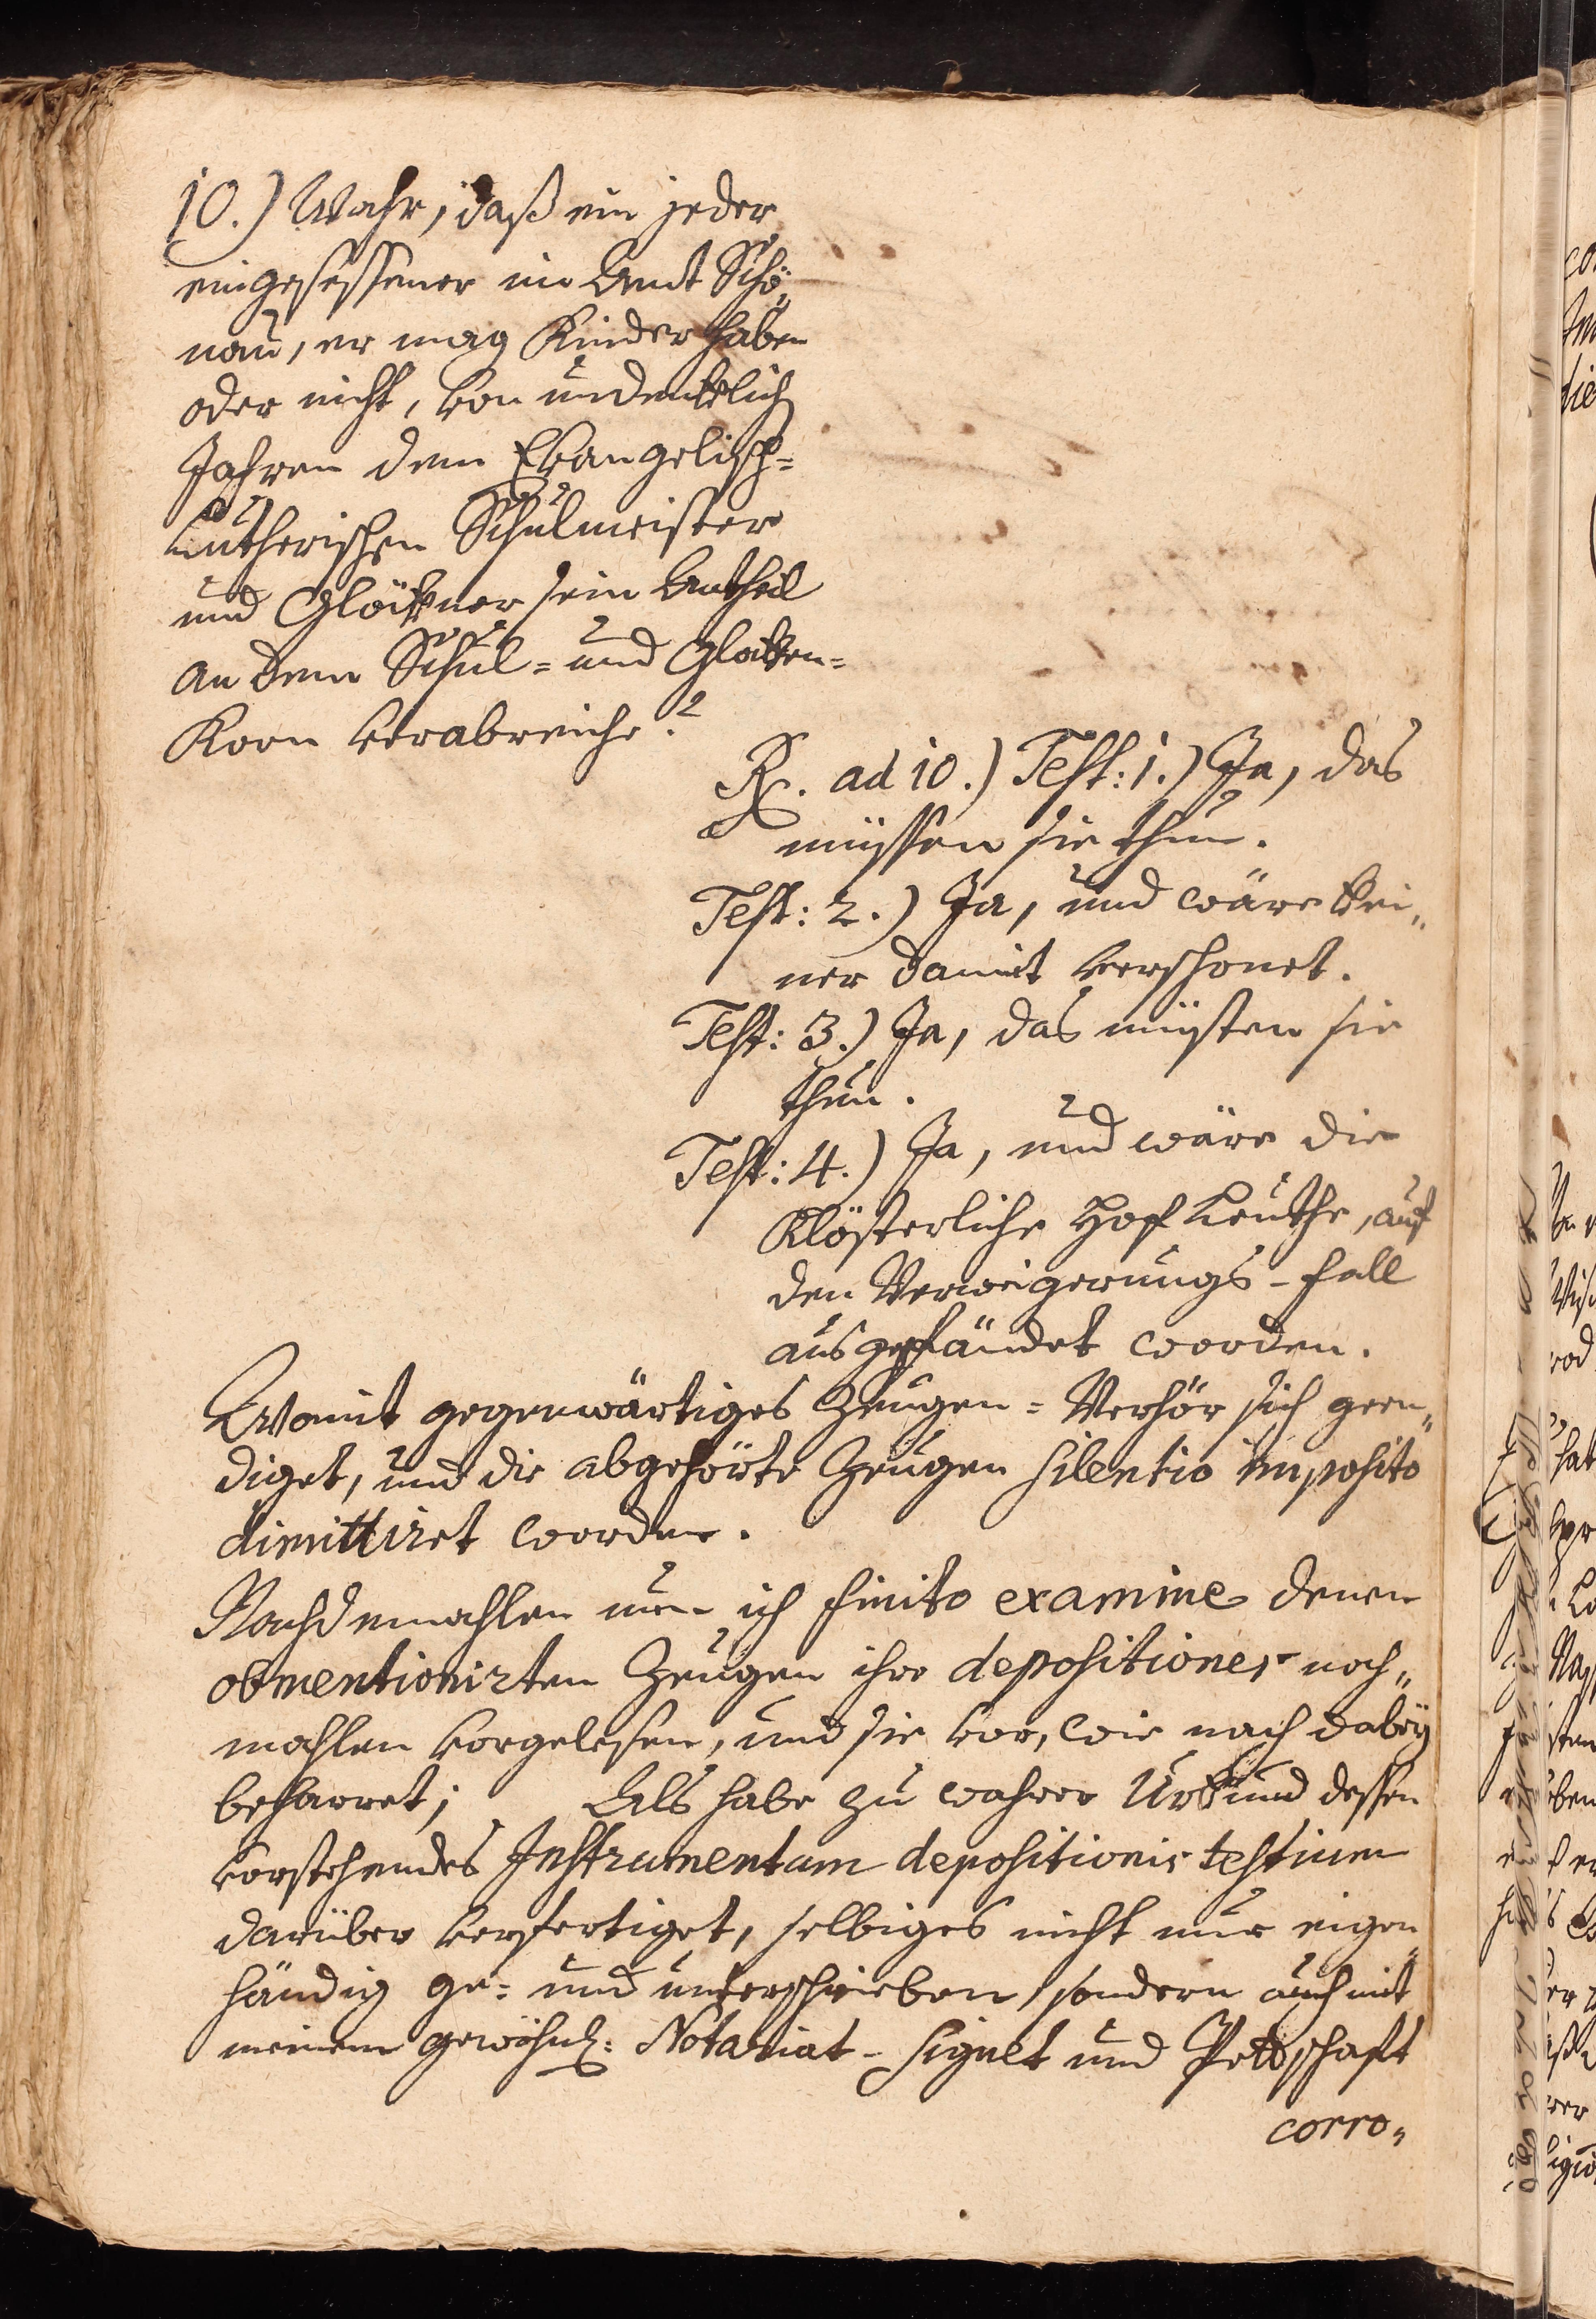 10.) Wahr, daß ein jeder
eingesessener im Amt Schö„
nau, er mag Kinder haben
oder nicht, von undencklich
Jahren dem Evangelisch=
Lutherischen Schulmeister
und Glöckner sein Antheil
an dem Schul= und Glocken=
Korn verabreiche?
Rx. ad 10.) Test: 1.) Ja, das
müssen sie thun.
Test: 2.) Ja, und wäre kei„
ner damit verschonet.
Test: 3.) Ja, das müsten sie
thun.
Test: 4.) Ja, und wäre die
Klösterliche Hof Leuthe, auf
den Verweigerungs-fall
ausgepfändet worden.
Womit gegenwärtiges Zeugen=Verhör sich geen„
diget, und die abgehörte Zeugen silentio imposito
dimittiret worden.
Nachdemahlen nun ich finito examine denen
obmentionirten Zeugen ihre depositiones noch„
mahlen vorgelesen, und sie vor, wie nach dabeÿ
beharret; Als habe zu wahrer Urkund dessen
vorstehendes Instrumentum depositionis testium
darüber verfertiget, selbiges nicht nur eigen„
händig ge= und unterschrieben, sondern auch mit
meinem gewöhnl: Notariat-Signet und Pettschaft
corro„